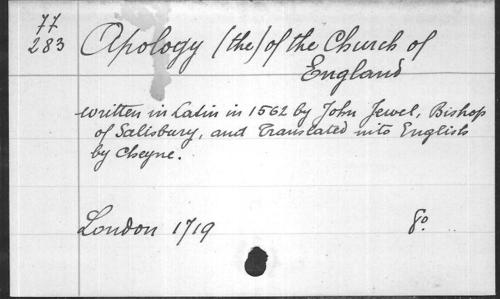 77
283
Apology (the) of the Church of
England
written in Latin in 1562 by John Jewel, Bishop
of Salisbury, and Translated into English
by Cheyne.
London 1719 8o